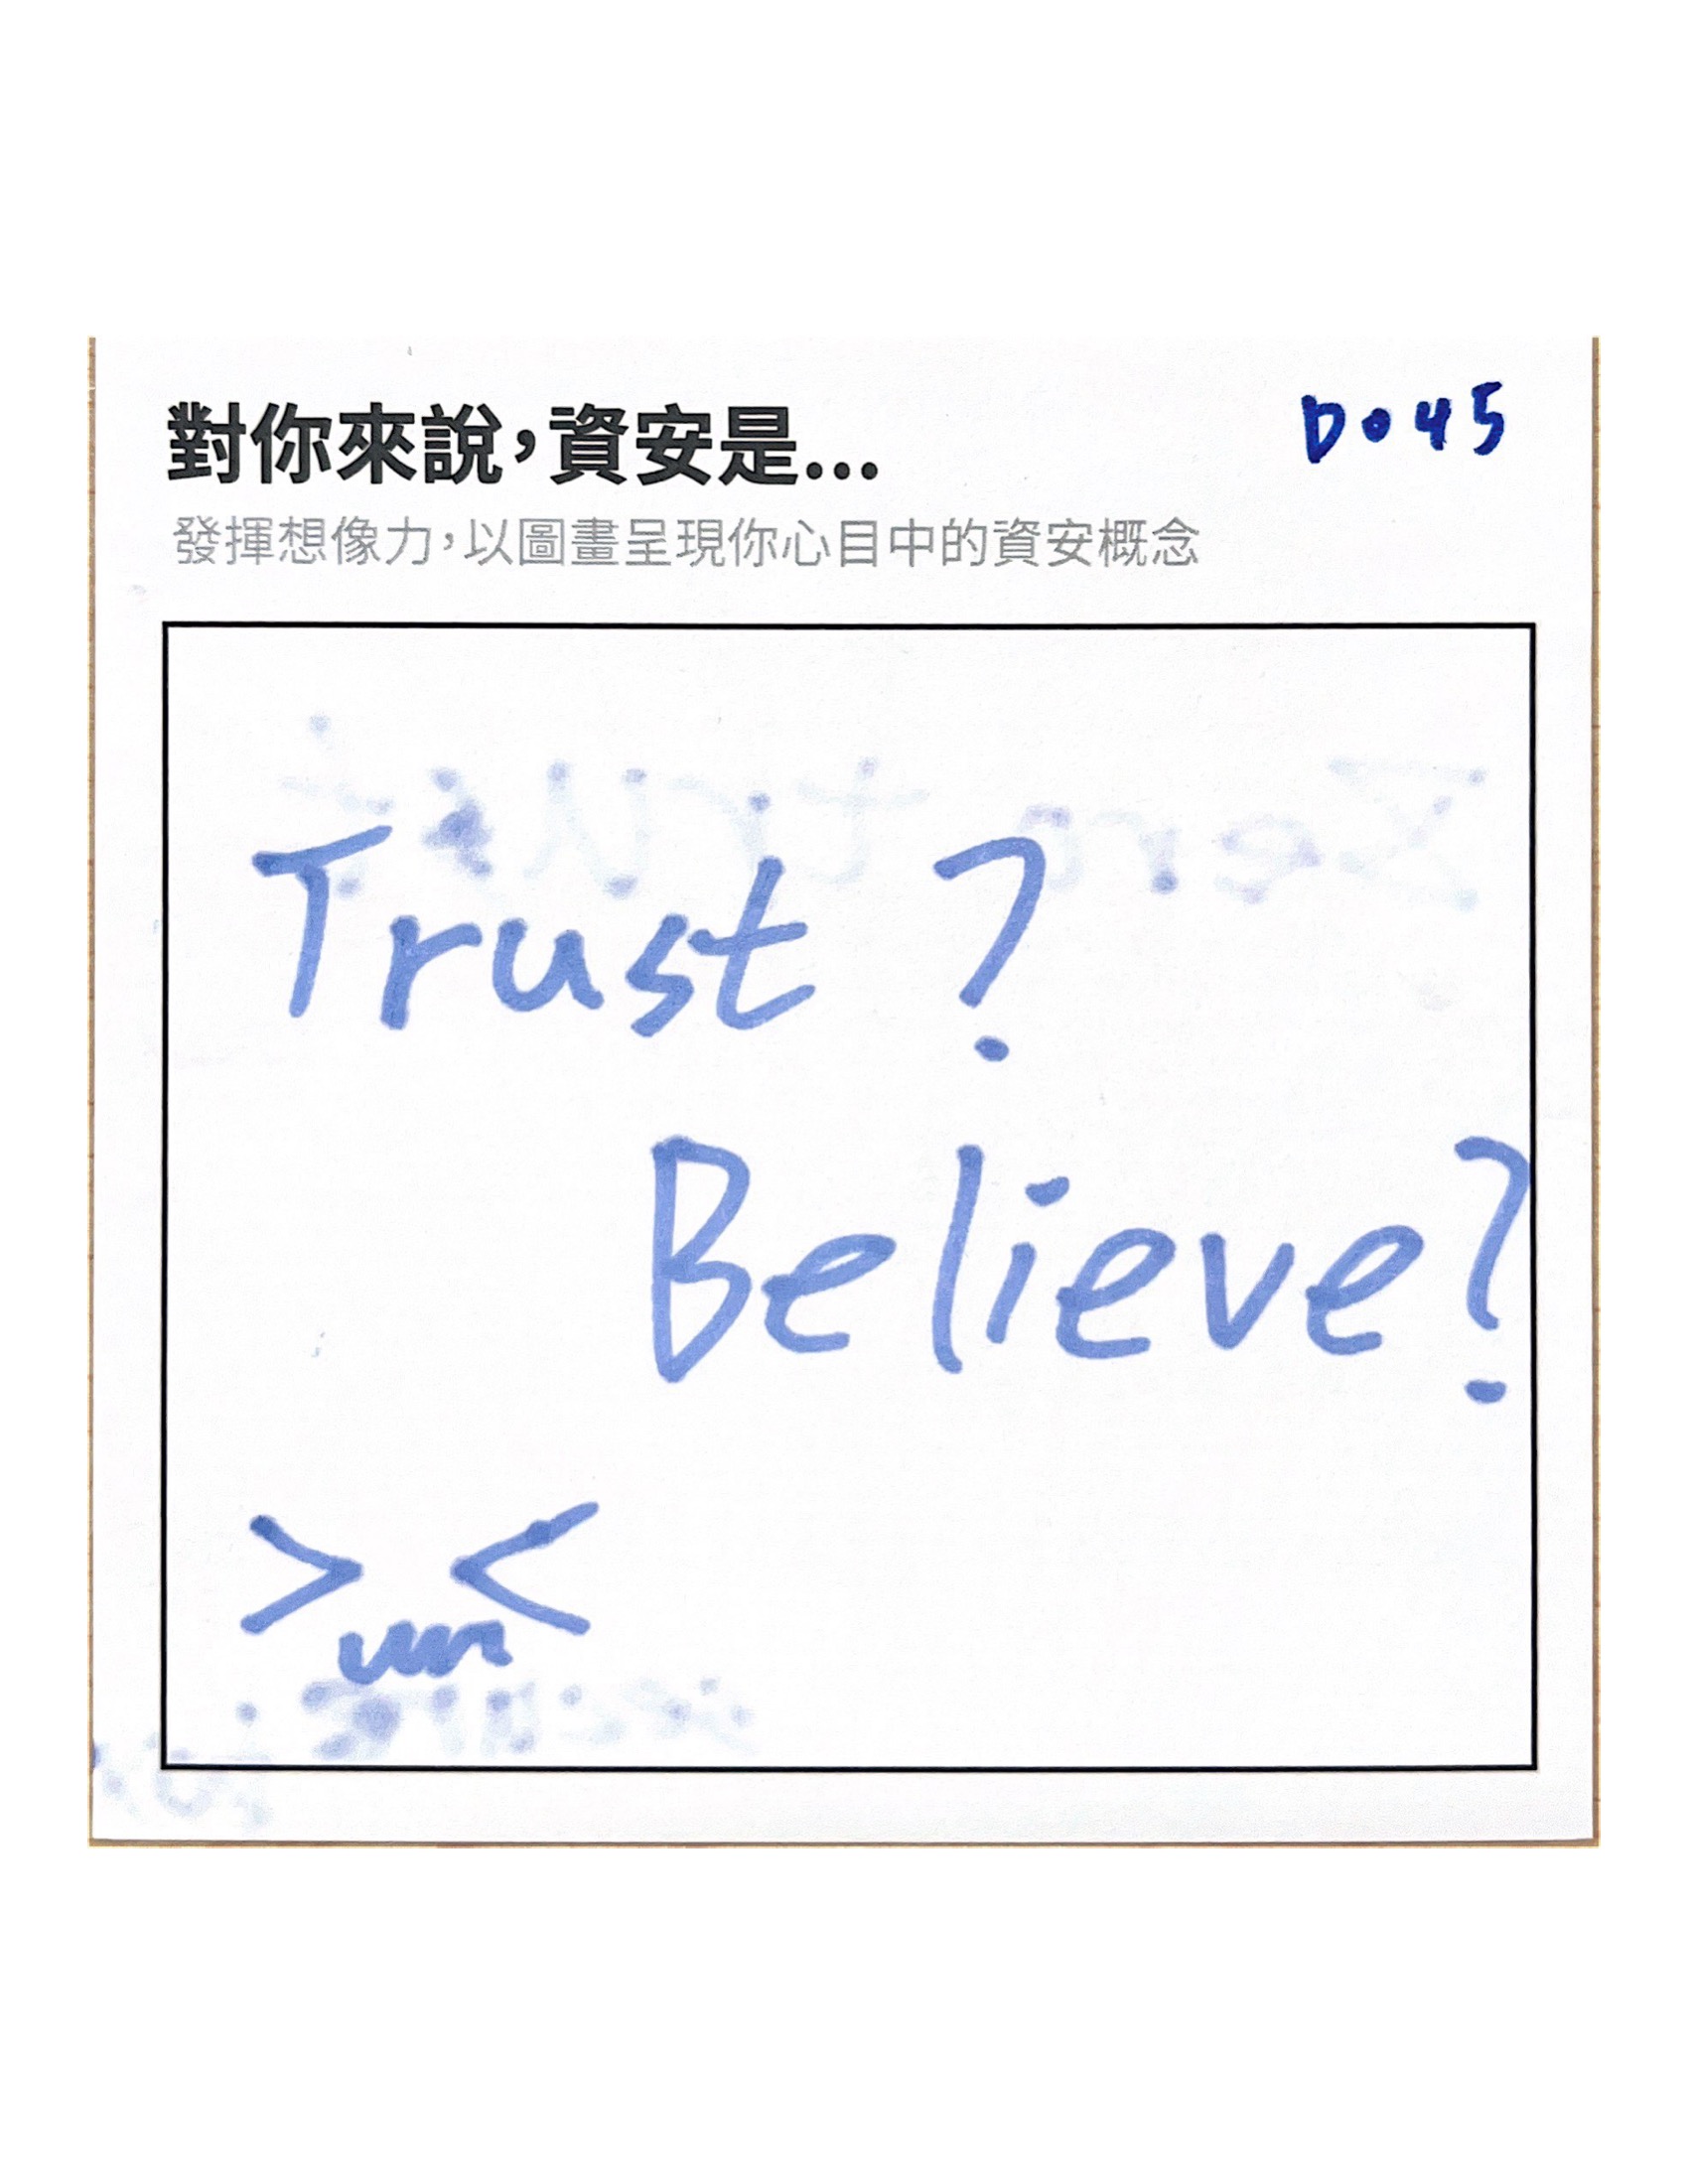 對你來說，資安是...
D045
發揮想像力，以圖畫呈現你心目中的資安概念
Trust ?
Believe?